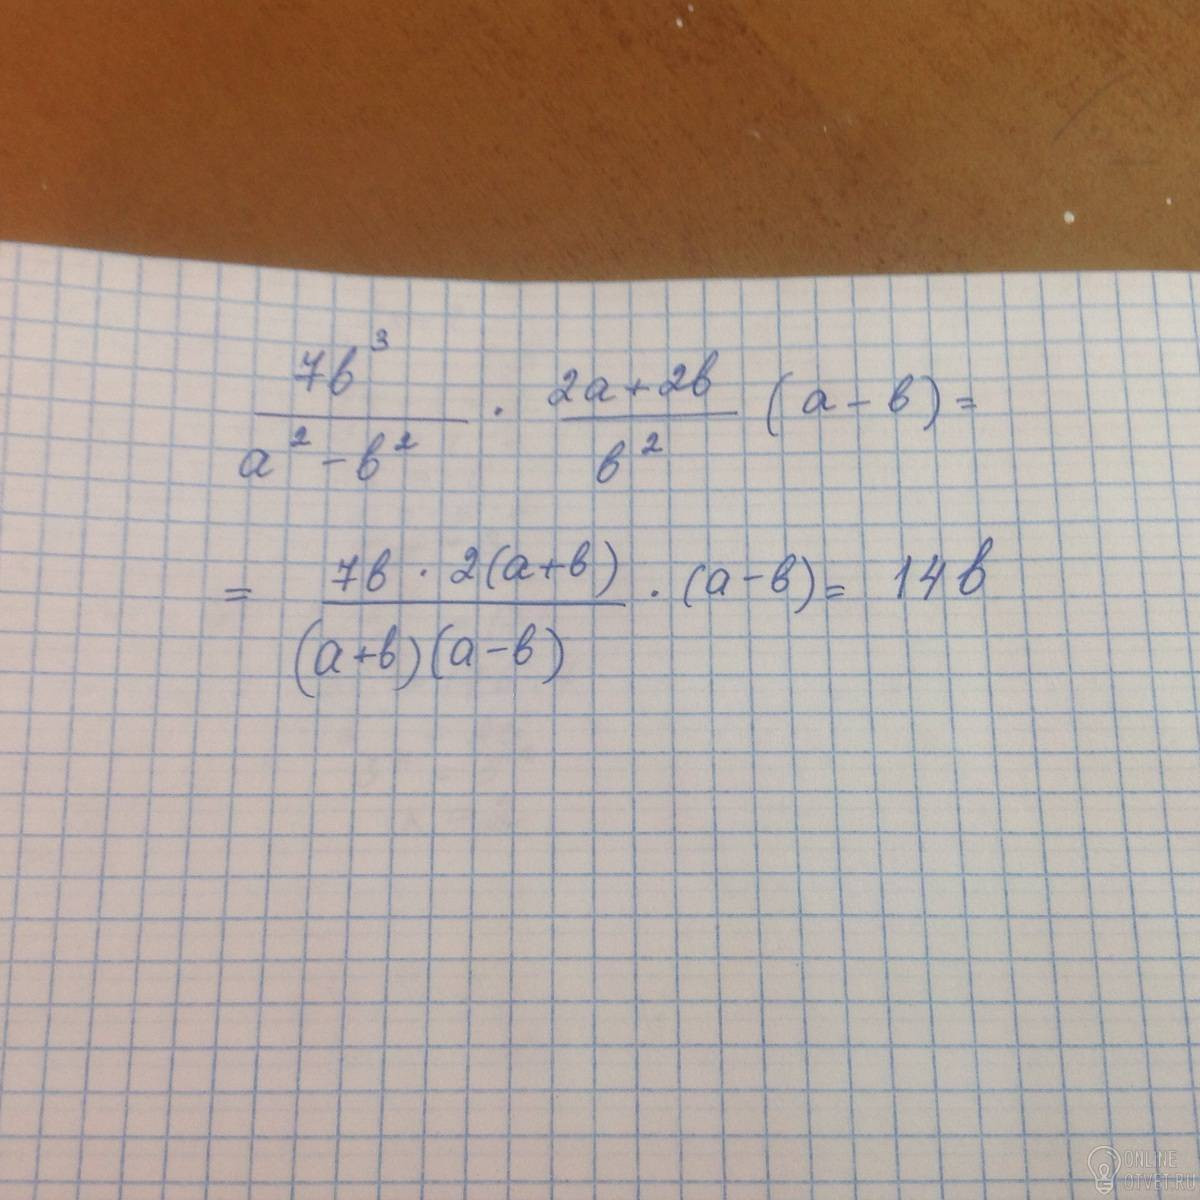 7b³/(a² - b²) · (2a + 2b)/b² (a - b) =
= 7b · 2(a+b)/((a+b)(a-b)) · (a-b) = 14b
ONLINE
OTVET.RU